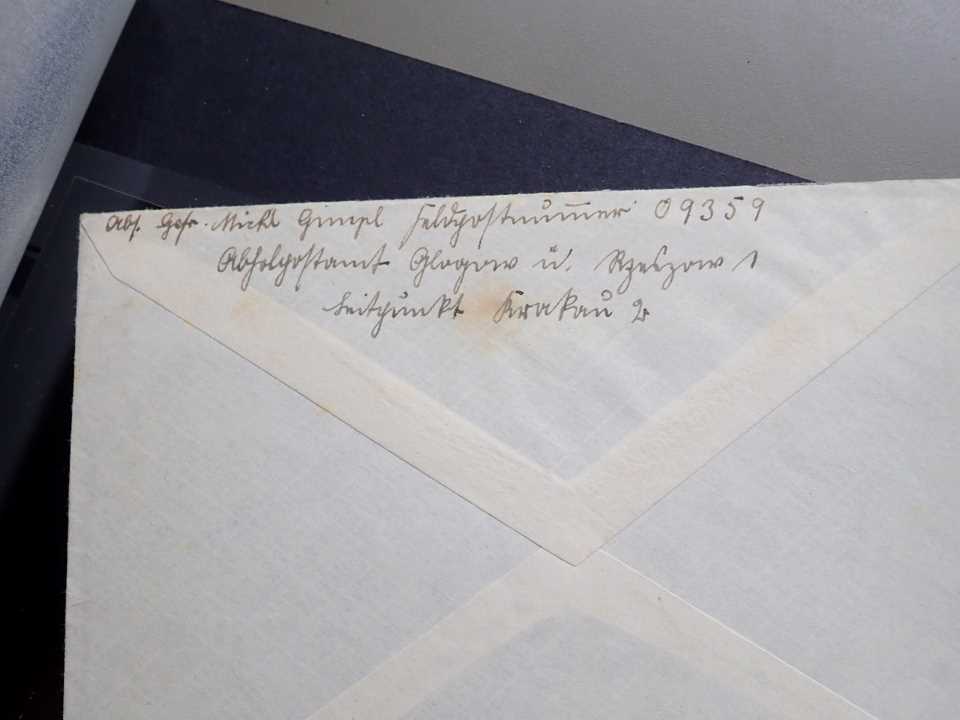 Abs. Gefr. Michl Gimpl Feldpostnummer 09359
Abholpostamt Glogow ü. Rzeszow 1
Leitpunkt Krakau 2